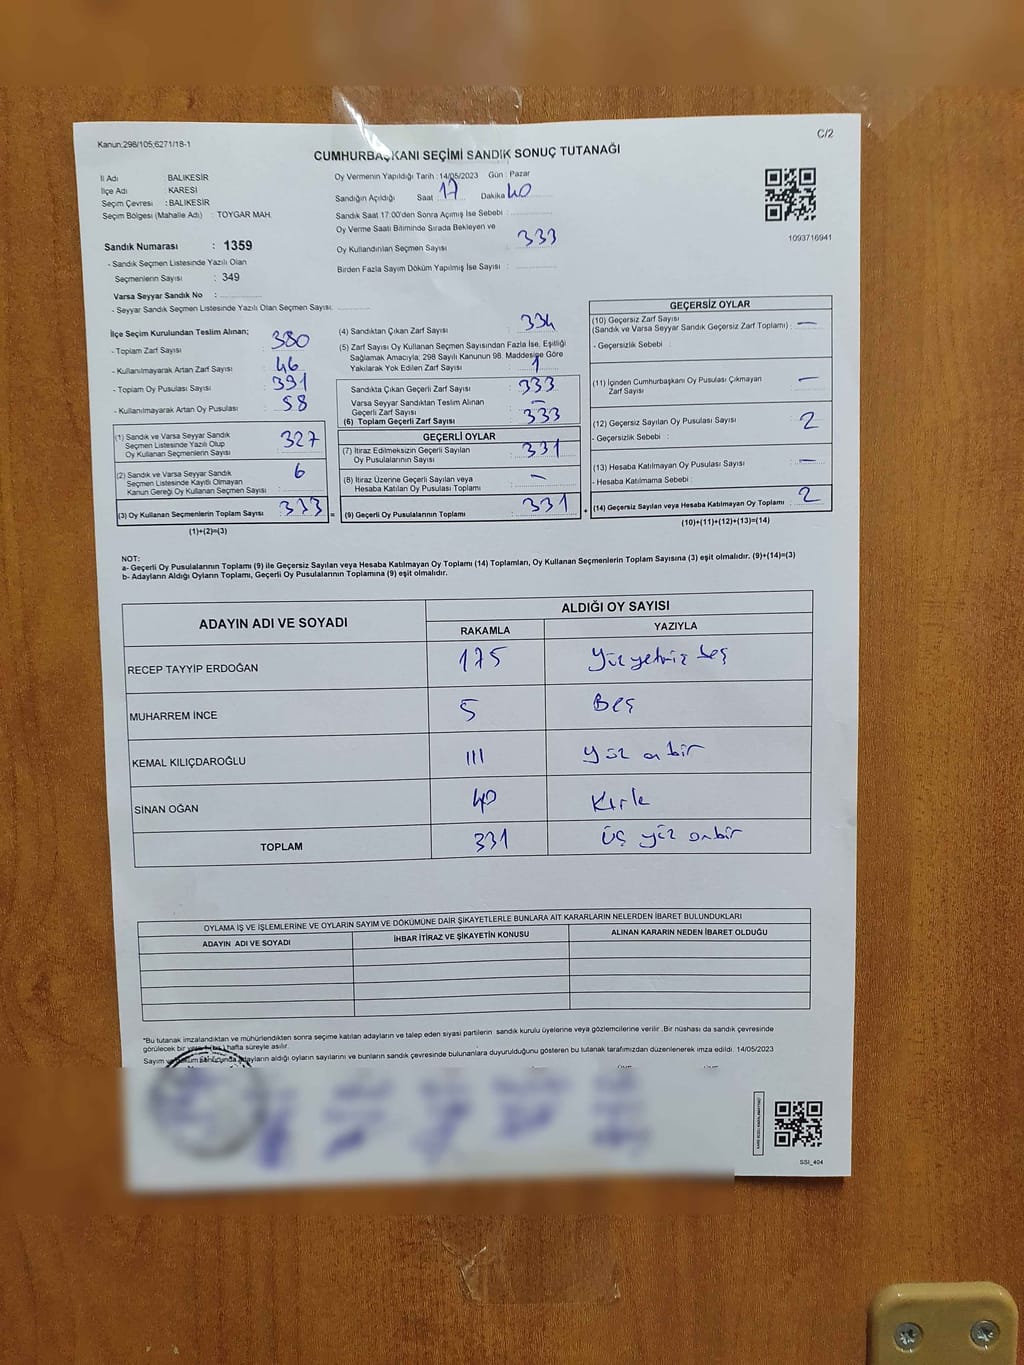 Kanun:298/105;6271/18-1
C/2
CUMHURBAŞKANI SEÇİMİ SANDIK SONUÇ TUTANAĞI
İl Adı : BALIKESİR
İlçe Adı : KARESİ
Seçim Çevresi : BALIKESİR
Seçim Bölgesi (Mahalle Adı) : TOYGAR MAH.
Sandık Numarası : 1359
- Sandık Seçmen Listesinde Yazılı Olan
Seçmenlerin Sayısı : 349
Varsa Seyyar Sandık No :
- Seyyar Sandık Seçmen Listesinde Yazılı Olan Seçmen Sayısı:
Oy Vermenin Yapıldığı Tarih : 14/05/2023 Gün : Pazar
Sandığın Açıldığı Saat 17 Dakika 40
Sandık Saat 17:00'den Sonra Açımış İse Sebebi :
Oy Verme Saati Bitiminde Sırada Bekleyen ve
Oy Kullandırılan Seçmen Sayısı 333
Birden Fazla Sayım Döküm Yapılmış İse Sayısı :
1093716941
İlçe Seçim Kurulundan Teslim Alınan;
- Toplam Zarf Sayısı : 380
- Kullanılmayarak Artan Zarf Sayısı : 46
- Toplam Oy Pusulası Sayısı : 391
- Kullanılmayarak Artan Oy Pusulası : 58
(1) Sandık ve Varsa Seyyar Sandık
Seçmen Listesinde Yazılı Olup
Oy Kullanan Seçmenlerin Sayısı : 327
(2) Sandık ve Varsa Seyyar Sandık
Seçmen Listesinde Kayıtlı Olmayan
Kanun Gereği Oy Kullanan Seçmen Sayısı : 6
(3) Oy Kullanan Seçmenlerin Toplam Sayısı : 333 =
(1)+(2)=(3)
(4) Sandıktan Çıkan Zarf Sayısı : 334
(5) Zarf Sayısı Oy Kullanan Seçmen Sayısından Fazla İse, Eşitliği
Sağlamak Amacıyla; 298 Sayılı Kanunun 98. Maddesine Göre
Yakılarak Yok Edilen Zarf Sayısı : 1
Sandıkta Çıkan Geçerli Zarf Sayısı : 333
Varsa Seyyar Sandıktan Teslim Alınan
Geçerli Zarf Sayısı : –
(6) Toplam Geçerli Zarf Sayısı : 333
GEÇERLİ OYLAR
(7) İtiraz Edilmeksizin Geçerli Sayılan
Oy Pusulalarının Sayısı : 331
(8) İtiraz Üzerine Geçerli Sayılan veya
Hesaba Katılan Oy Pusulası Toplamı : –
(9) Geçerli Oy Pusulalarının Toplamı : 331 +
GEÇERSİZ OYLAR
(10) Geçersiz Zarf Sayısı
(Sandık ve Varsa Seyyar Sandık Geçersiz Zarf Toplamı) : –
- Geçersizlik Sebebi :
(11) İçinden Cumhurbaşkanı Oy Pusulası Çıkmayan
Zarf Sayısı : –
(12) Geçersiz Sayılan Oy Pusulası Sayısı : 2
- Geçersizlik Sebebi :
(13) Hesaba Katılmayan Oy Pusulası Sayısı : –
- Hesaba Katılmama Sebebi :
(14) Geçersiz Sayılan veya Hesaba Katılmayan Oy Toplamı : 2
(10)+(11)+(12)+(13)=(14)
NOT:
a- Geçerli Oy Pusulalarının Toplamı (9) ile Geçersiz Sayılan veya Hesaba Katılmayan Oy Toplamı (14) Toplamları, Oy Kullanan Seçmenlerin Toplam Sayısına (3) eşit olmalıdır. (9)+(14)=(3)
b- Adayların Aldığı Oyların Toplamı, Geçerli Oy Pusulalarının Toplamına (9) eşit olmalıdır.
ADAYIN ADI VE SOYADI ALDIĞI OY SAYISI
RAKAMLA YAZIYLA
RECEP TAYYİP ERDOĞAN 175 Yüz yetmiş beş
MUHARREM İNCE 5 Beş
KEMAL KILIÇDAROĞLU 111 Yüz on bir
SİNAN OĞAN 40 Kırk
TOPLAM 331 Üç yüz onbir
OYLAMA İŞ VE İŞLEMLERİNE VE OYLARIN SAYIM VE DÖKÜMÜNE DAİR ŞİKAYETLERLE BUNLARA AİT KARARLARIN NELERDEN İBARET BULUNDUKLARI
ADAYIN ADI VE SOYADI İHBAR İTİRAZ VE ŞİKAYETİN KONUSU ALINAN KARARIN NEDEN İBARET OLDUĞU
*Bu tutanak imzalandıktan ve mühürlendikten sonra seçime katılan adayların ve talep eden siyasi partilerin sandık kurulu üyelerine veya gözlemcilerine verilir .Bir nüshası da sandık çevresinde
görülecek bir yere 1 (bir) hafta süreyle asılır.
Sayım ve döküm sonucunda adayların aldığı oyların sayılarını ve bunların sandık çevresinde bulunanlara duyurulduğunu gösteren bu tutanak tarafımızdan düzenlenerek imza edildi. 14/05/2023
SSI_404